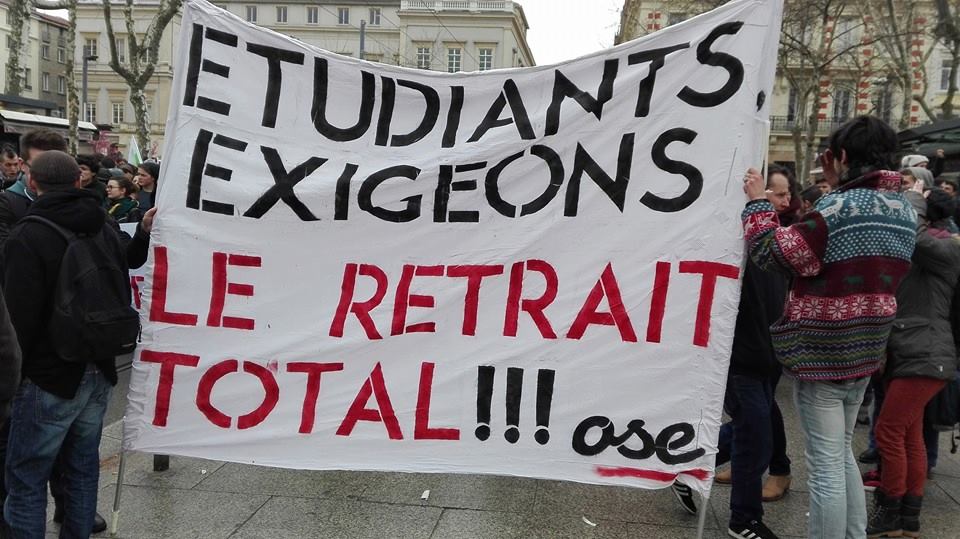 ETUDIANTS.
EXIGEONS
LE RETRAIT
TOTAL!!! ose